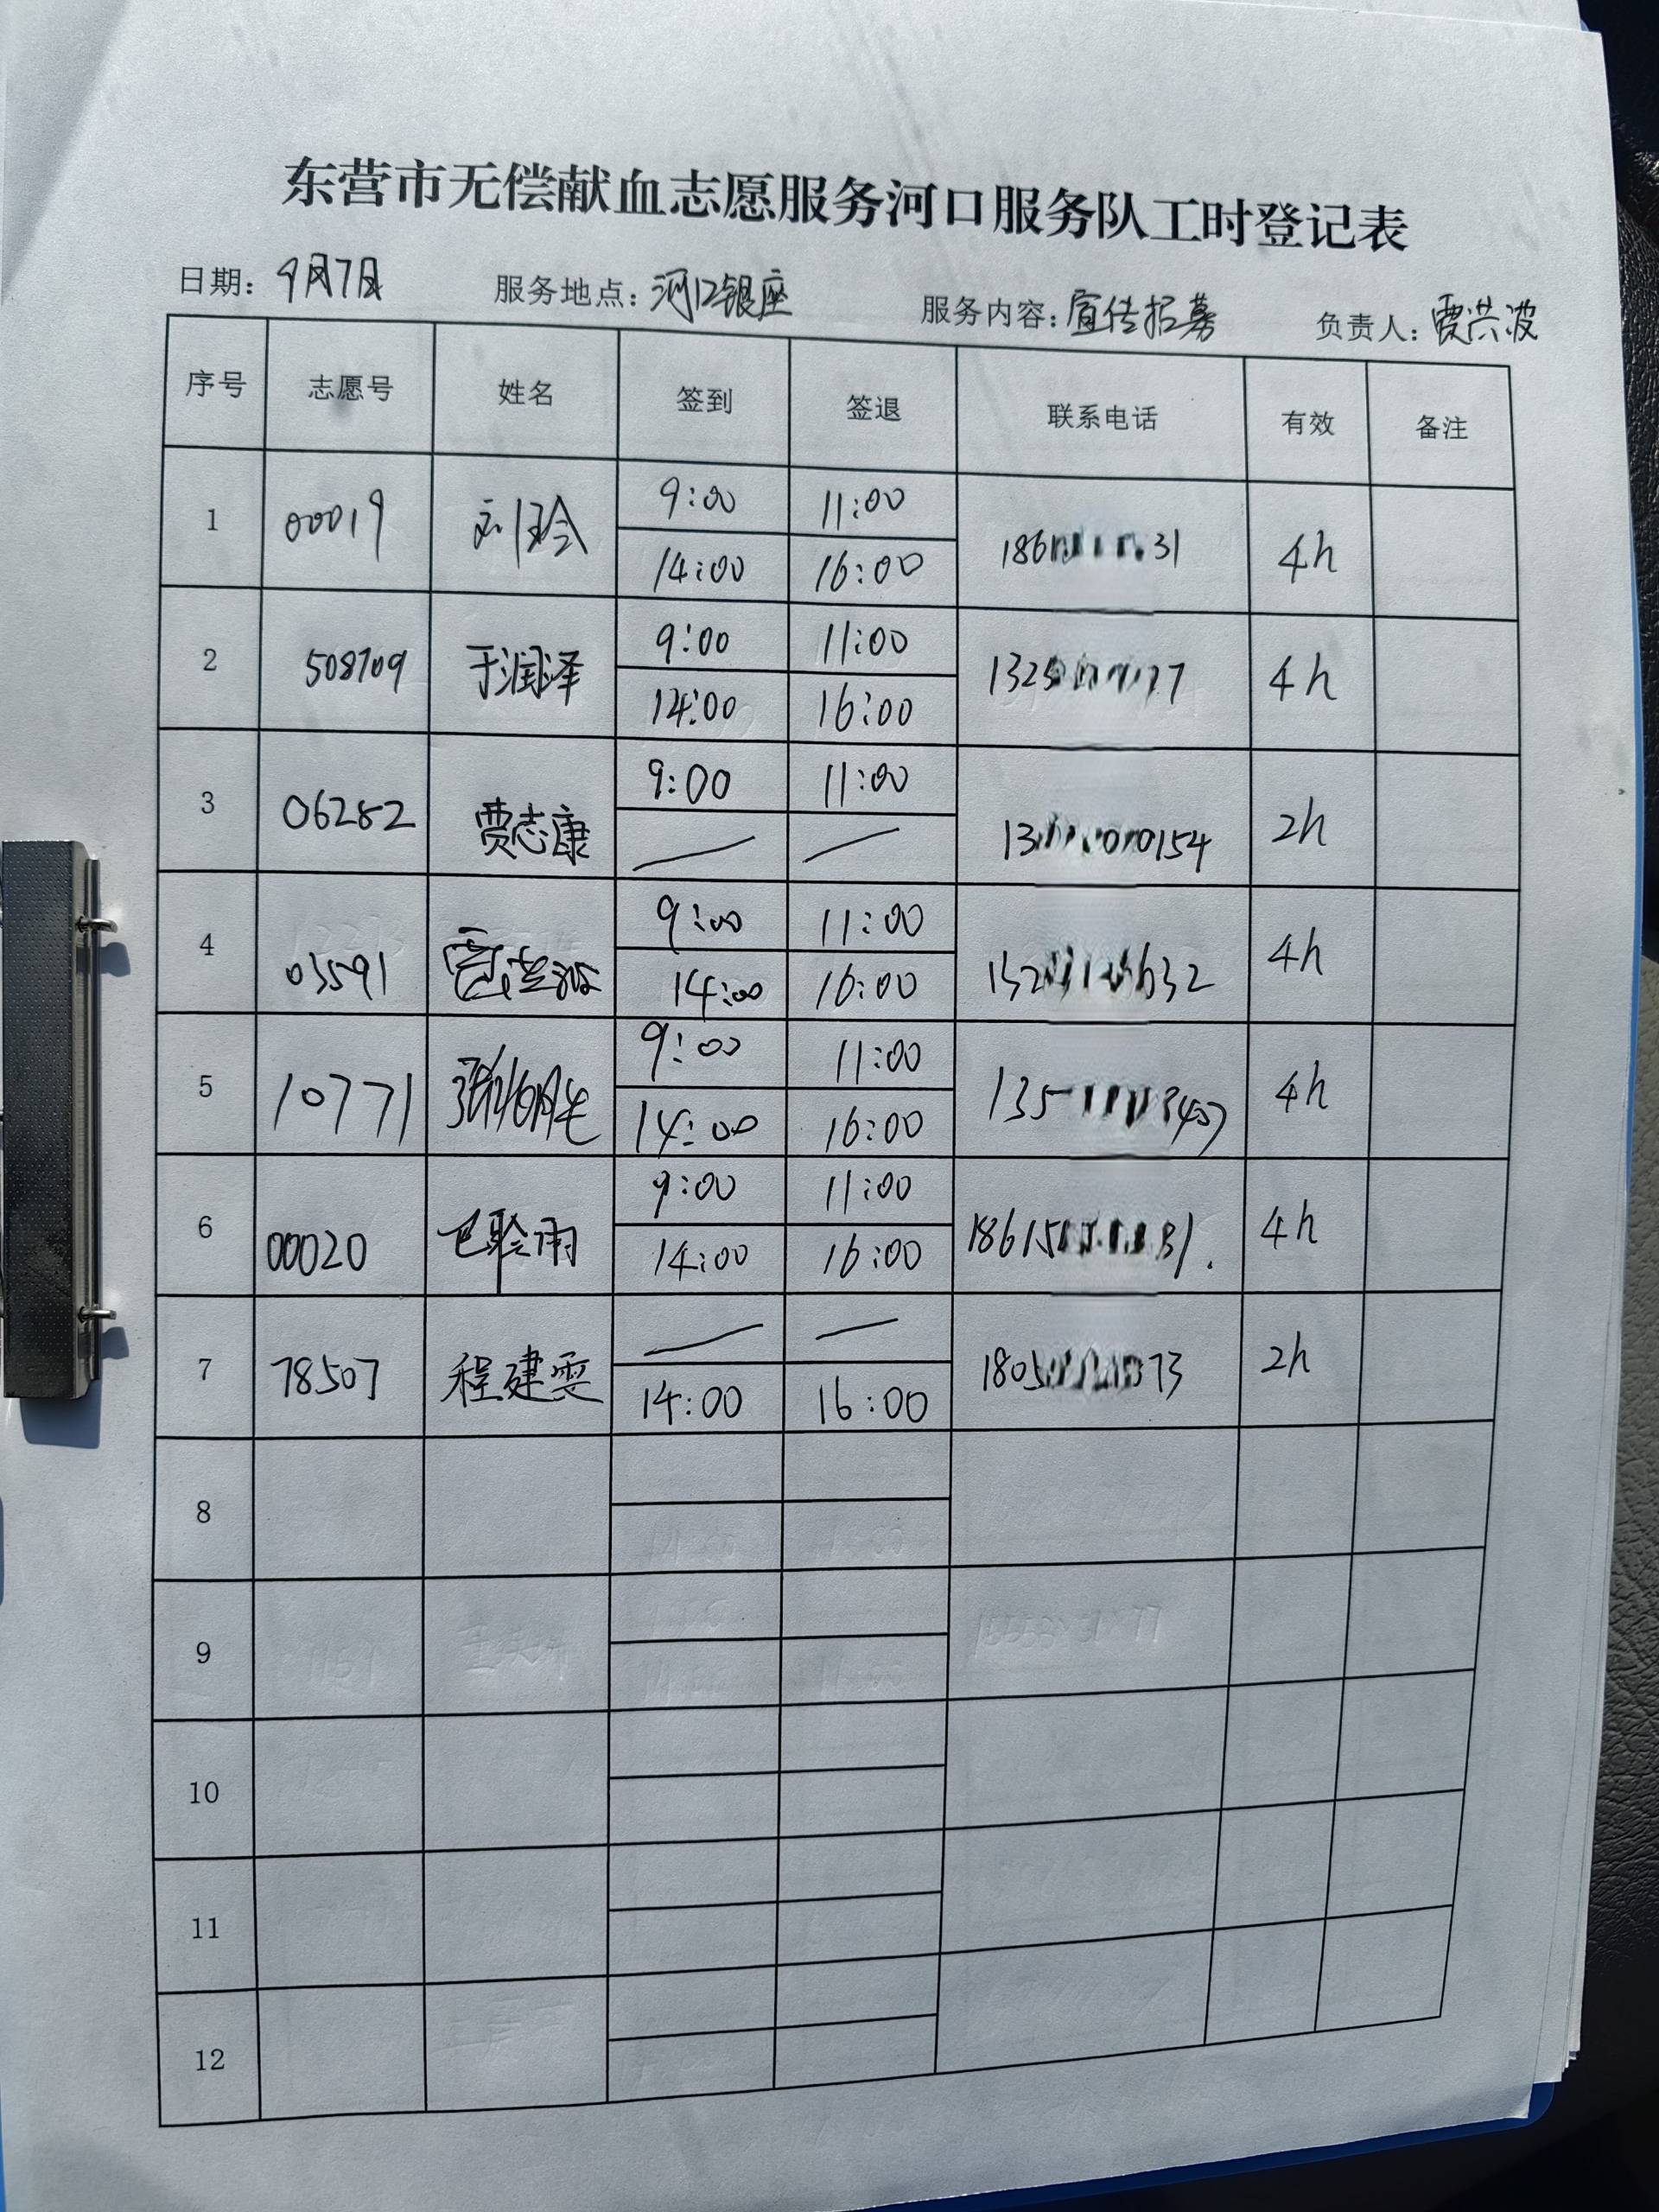 东营市无偿献血志愿服务河口服务队工时登记表
日期：9月7日 服务地点：河口银座 服务内容：宣传招募 负责人：贾洪波
序号 志愿号 姓名 签到 签退 联系电话 有效 备注
9:00 11:00
1 00019 刘玲 4h
14:00 16:00
9:00 11:00
2 508709 于润泽 4h
14:00 16:00
9:00 11:00
3 06282 贾志康 2h
4 03591 贾洪波 9:00 11:00 4h
14:00 16:00
9:00 11:00
5 10771 4h
14:00 16:00
9:00 11:00
6 00020 4h
14:00 16:00
7 78507 程建雯 2h
14:00 16:00
8
9
10
11
12